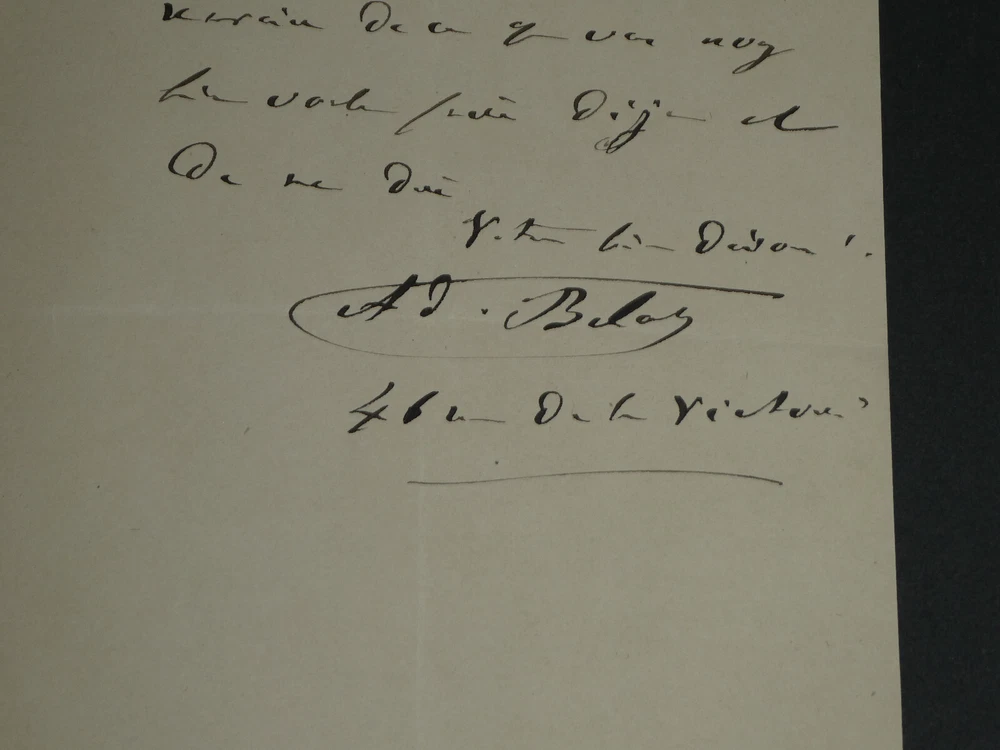 de ce que vous avez
bien voulu faire déjà et
de me dire
Votre bien dévoué.
Ad. Belot
46 rue de la Victoire